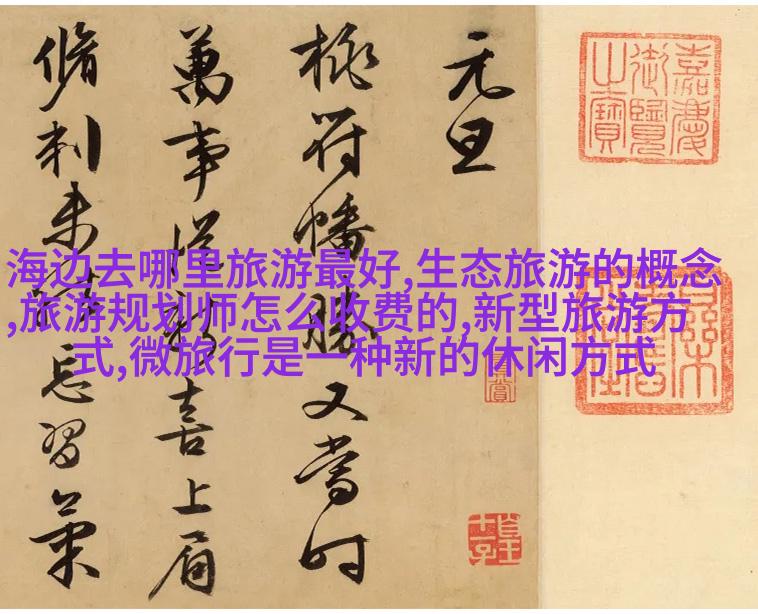 嘉慶御覽之寶
元旦
桃符幡勝又當時
萬事從新喜上眉
脩刺未能忘習
海边去哪里旅游最好,生态旅游的概念
,旅游规划师怎么收费的,新型旅游方
式,微旅行是一种新的休闲方式